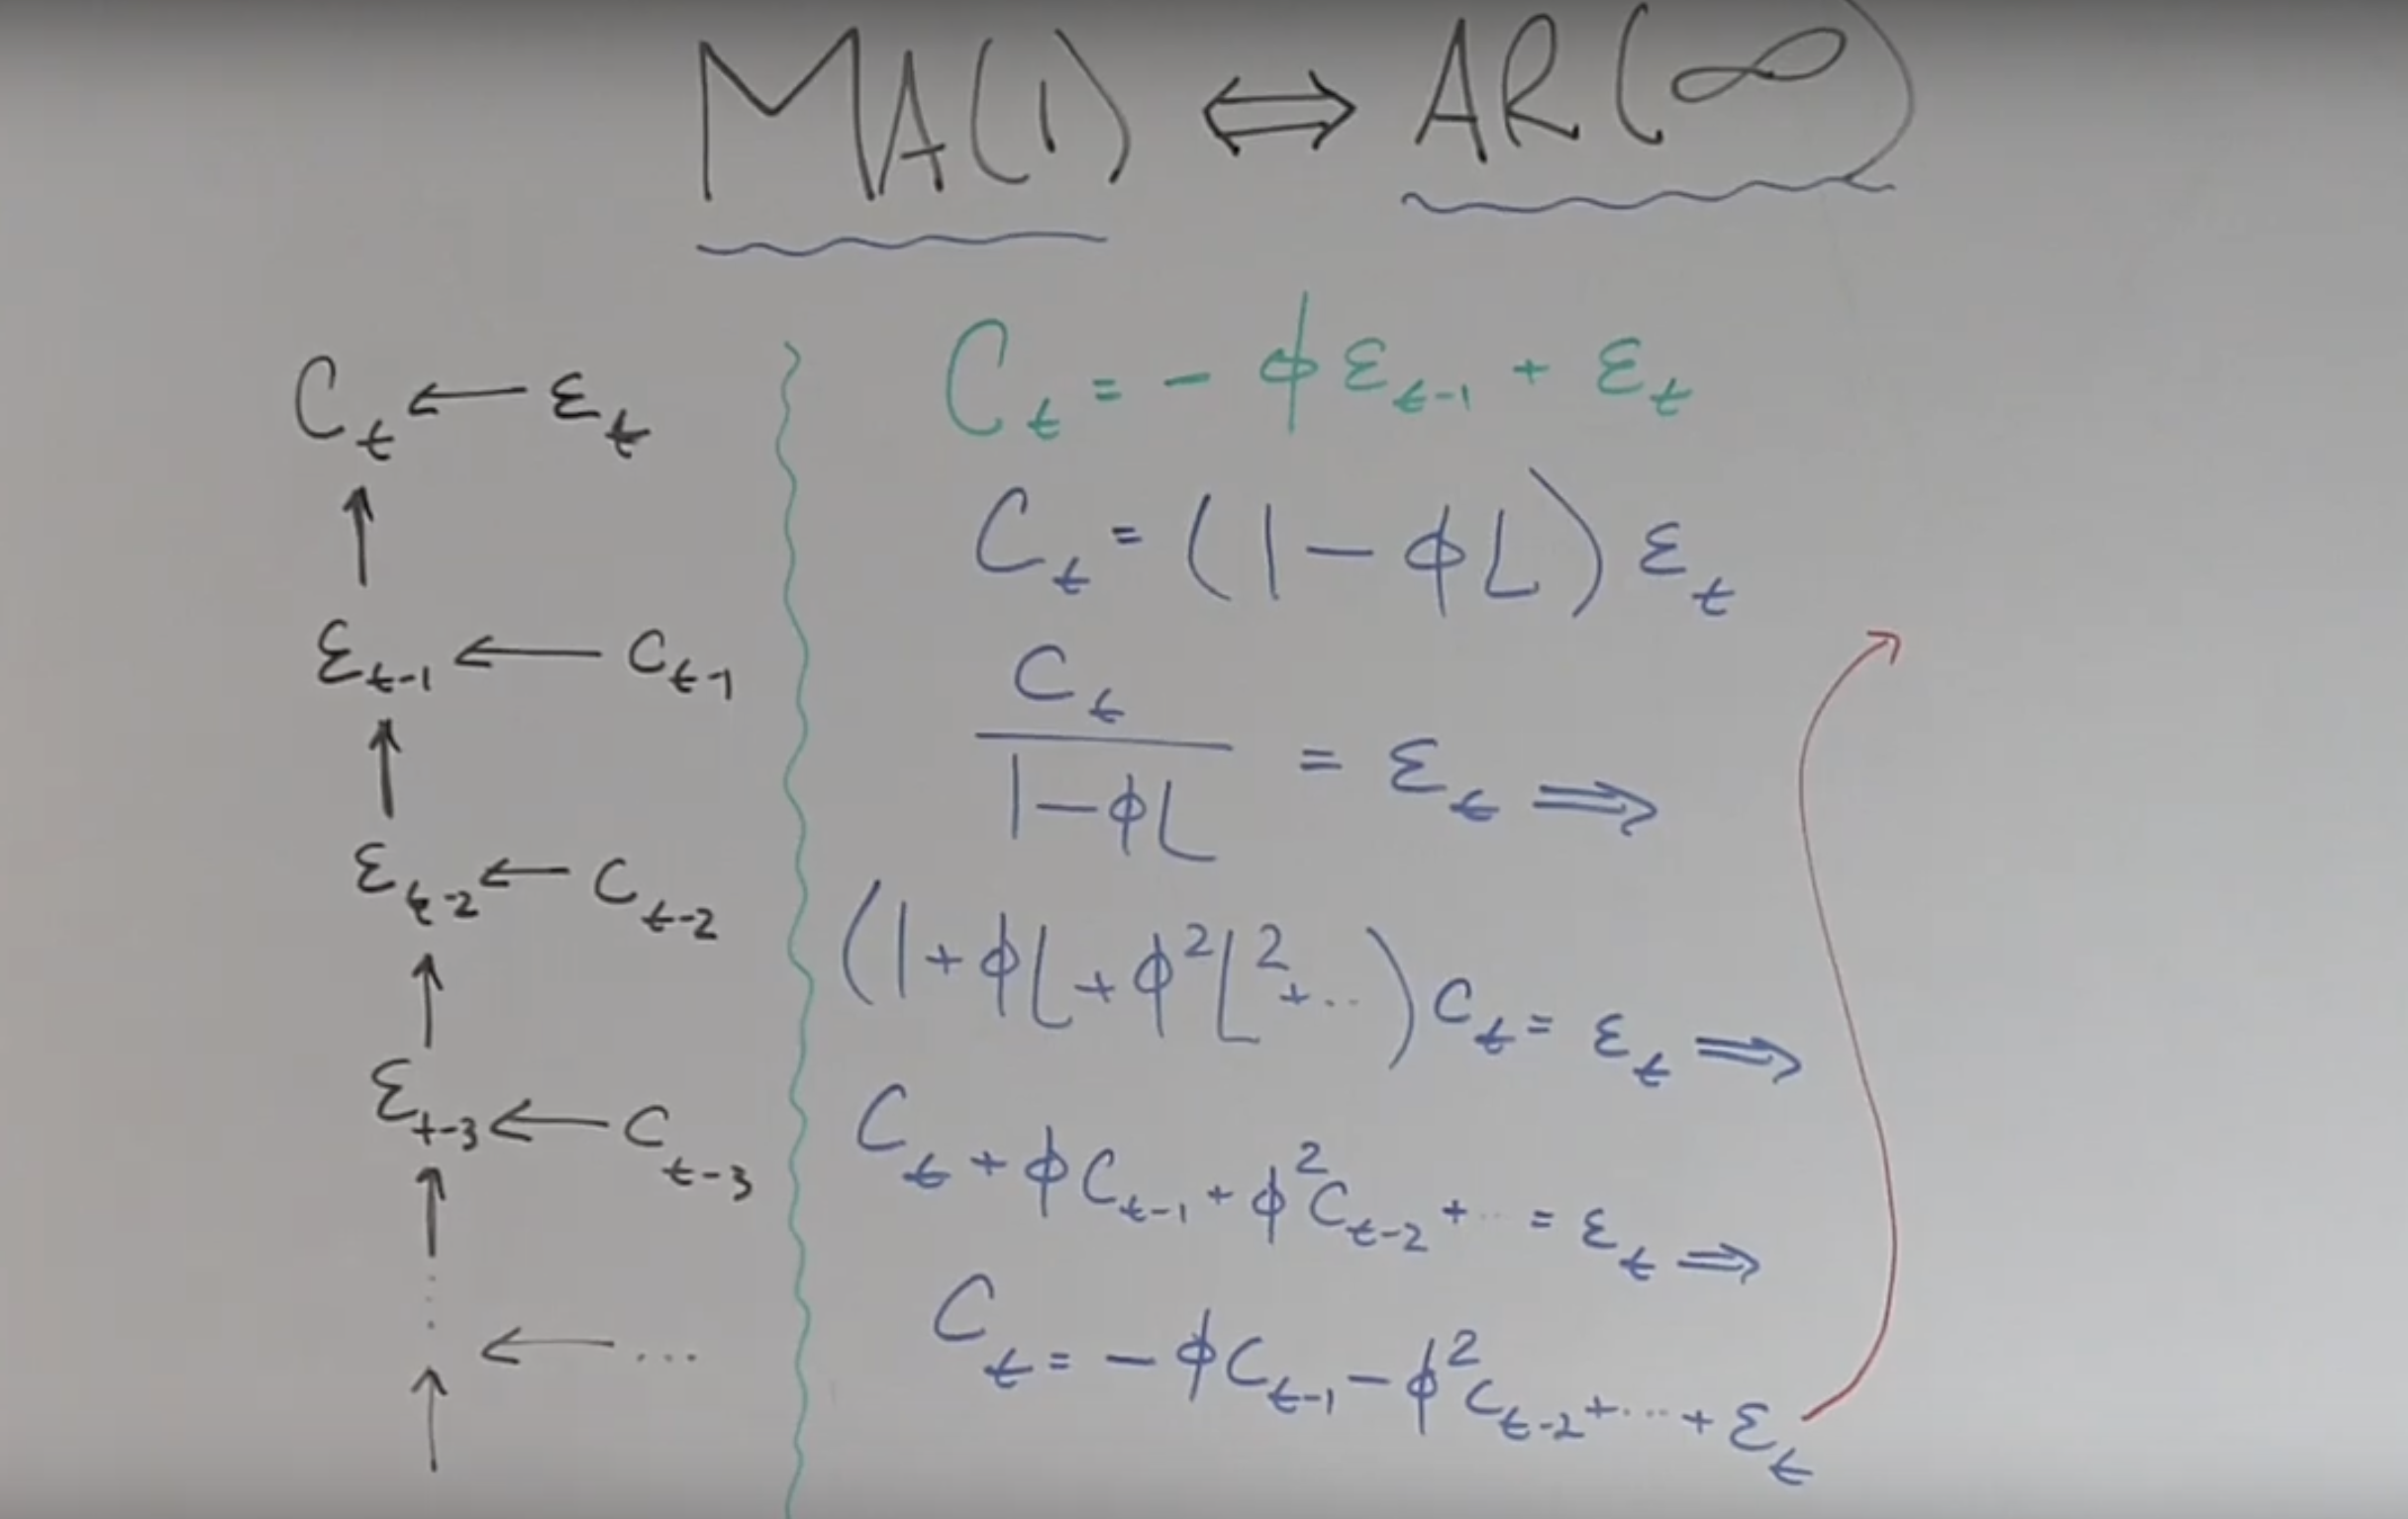 MA(1) ⇔ AR(∞)
C_t ← ε_t
↑
ε_{t-1} ← C_{t-1}
↑
ε_{t-2} ← C_{t-2}
↑
ε_{t-3} ← C_{t-3}
↑
⋮ ← ...
↑
C_t = - ϕ ε_{t-1} + ε_t
C_t = (1 - ϕL) ε_t
C_t / (1 - ϕL) = ε_t ⇒
(1 + ϕL + ϕ²L² + ..) C_t = ε_t ⇒
C_t + ϕC_{t-1} + ϕ²C_{t-2} + ... = ε_t ⇒
C_t = - ϕC_{t-1} - ϕ²C_{t-2} + ... + ε_t